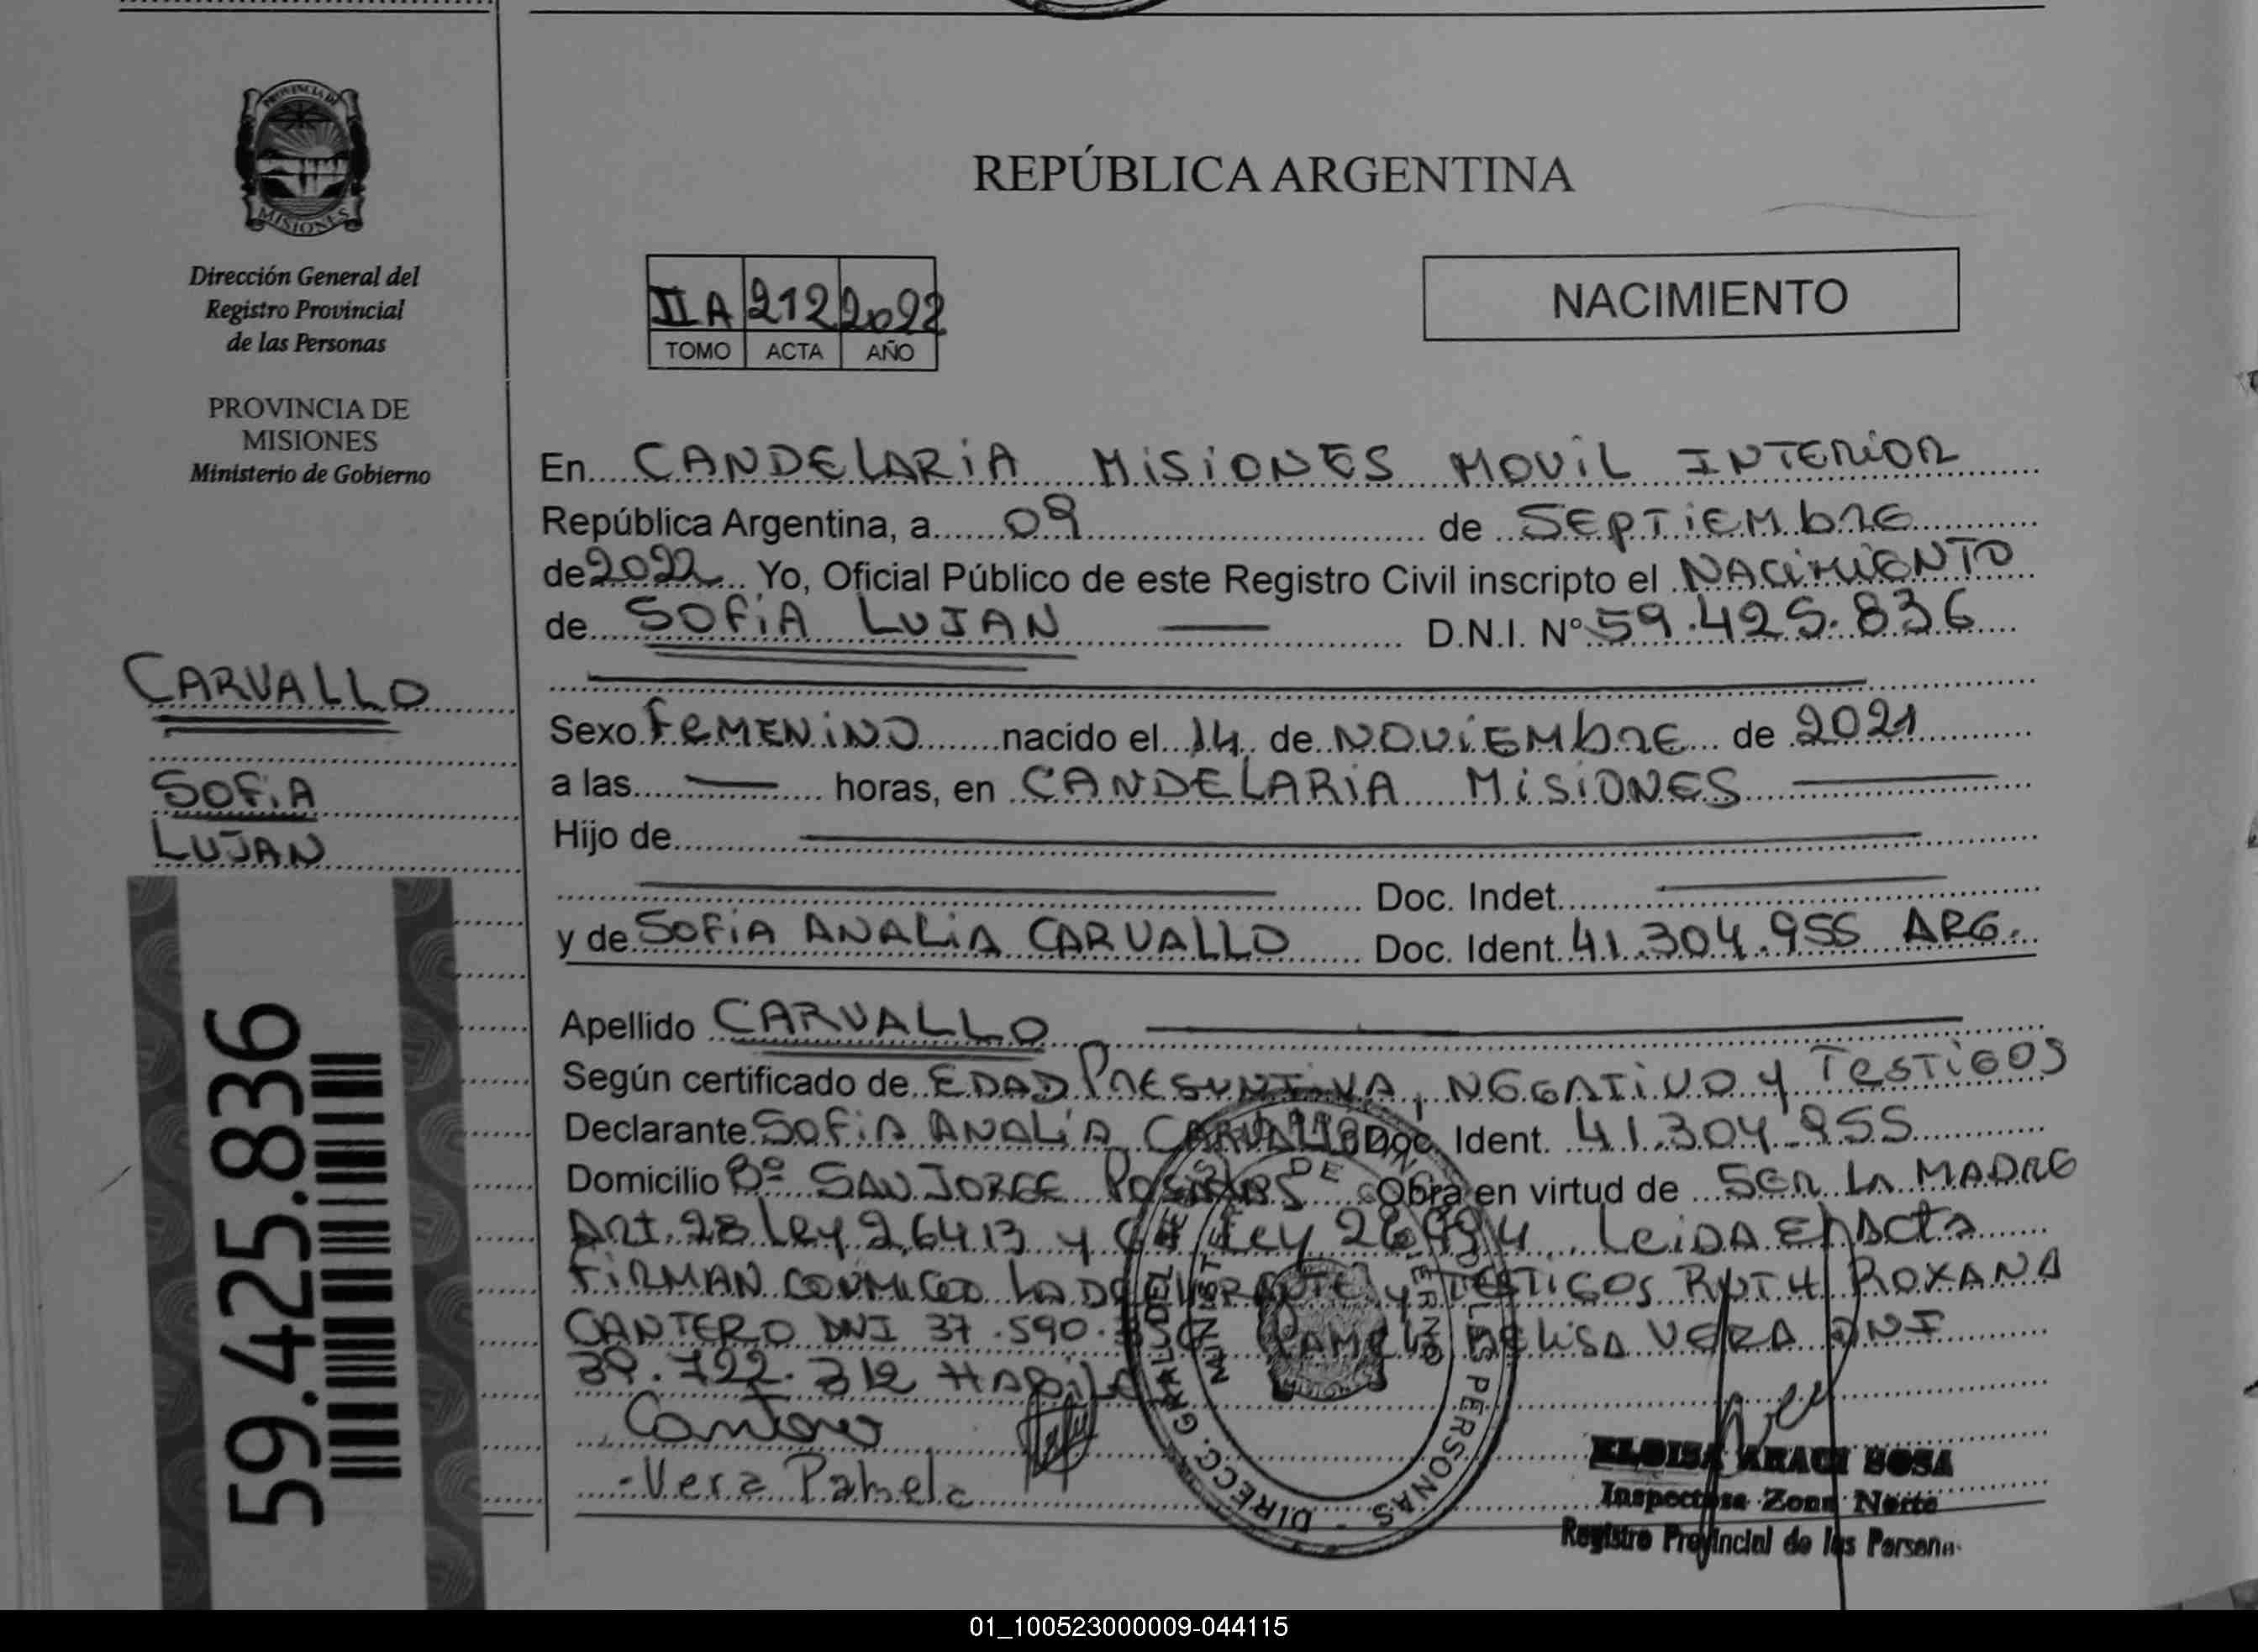 PROVINCIA DE
MISIONES
Dirección General del
Registro Provincial
de las Personas
PROVINCIA DE
MISIONES
Ministerio de Gobierno
CARVALLO
SOFiA
LUJAN
59.425.836
REPÚBLICA ARGENTINA
II A 212 2022
TOMO ACTA AÑO
NACIMIENTO
En CANDELARiA MiSiONES MOViL INTERiOR
República Argentina, a 09 de SEPTiEMbRE
de 2022 Yo, Oficial Público de este Registro Civil inscripto el NACiMiENTO
de SOFiA LUJAN D.N.I. Nº 59.425.836
Sexo FEMENiNO nacido el 14 de NOViEMbRE de 2021
a las horas, en CANDELARiA MiSiONES
Hijo de
Doc. Indet.
y de SOFiA ANALiA CARVALLO Doc. Ident. 41.304.955 ARG.
Apellido CARVALLO
Según certificado de EDAD PRESUNTIVA, NEGATiVO y TESTiGOS
Declarante SOFiA ANALiA CARVALLO Doc. Ident. 41.304.955
Domicilio Bº SAN JORGE POSADAS Obra en virtud de SER LA MADRE
Art. 28 Ley 26413 y Ley LEiDA El ActA
FiRMAN CONMiGO LA DECLARANTE y TESTiGOS RUTH ROXANA
CANTERO DNI 37.590. PAMELA VERA DNI
39.722.312 HABiLES
Cantero
Vera Pamela
DIRECC. GRAL. DE LAS PERSONAS
MINISTERIO DE GOBIERNO
ELOISA ARACI SOSA
Inspectora Zona Norte
Registro Provincial de las Persona
01_100523000009-044115